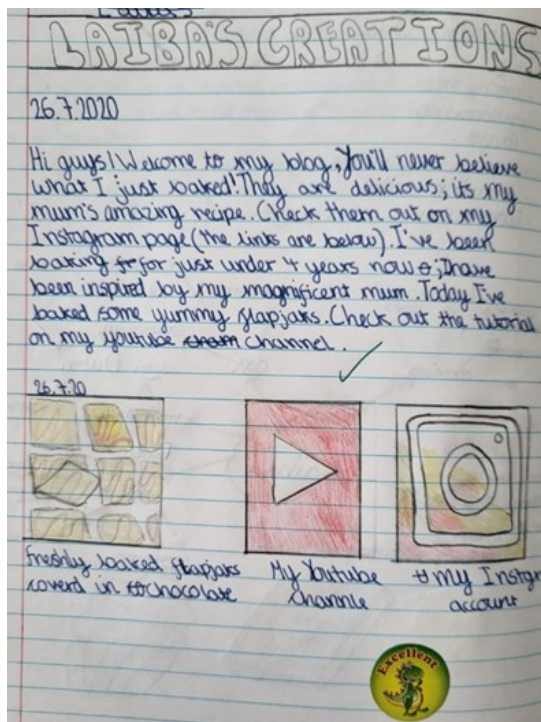 LAIBA'S CREATIONS
26.7.2020
Hi guys! Welcome to my blog, You'll never believe
what I just baked! They are delicious; its my
mum's amazing recipe. Check them out on my
Instagram page (the links are below). I've been
baking for just under 4 years now; I have
been inspired by my magnificent mum. Today I've
baked some yummy flapjaks. Check out the tutorial
on my youtube channel.
26.7.20
Freshly baked flapjaks
coverd in chocolate
My Youtube
channle
my Instgr
account
Excellent